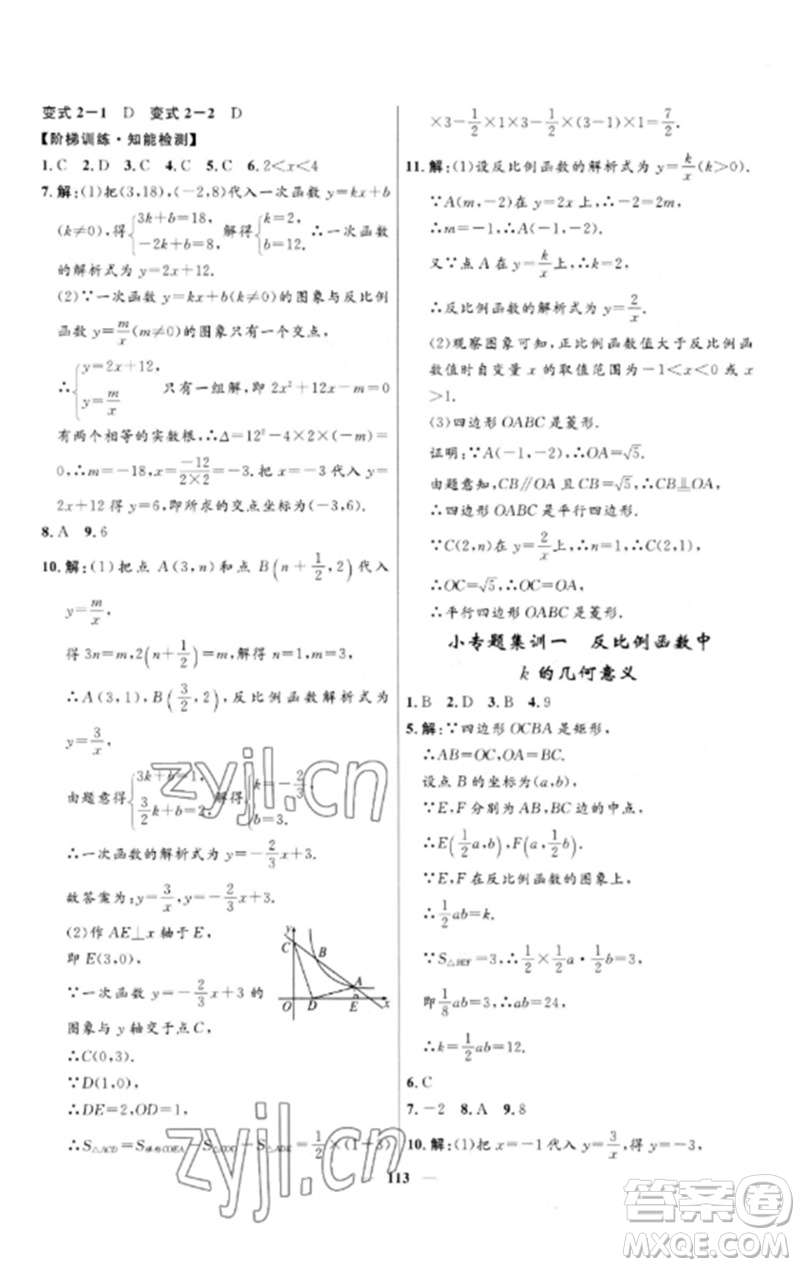 变式2-1 D 变式2-2 D
【阶梯训练·知能检测】
1.C 2.D 3.C 4.C 5.C 6.2<x<4
7.解:(1)把(3,18),(-2,8)代入一次函数 y=kx+b
(k≠0),得{3k+b=18, -2k+b=8, 解得{k=2, b=12. ∴一次函数
的解析式为 y=2x+12.
(2)∵一次函数 y=kx+b(k≠0)的图象与反比例
函数 y=m/x(m≠0)的图象只有一个交点,
∴{y=2x+12, y=m/x 只有一组解,即 2x²+12x-m=0
有两个相等的实数根,∴Δ=12²-4×2×(-m)=
0,∴m=-18,∴x=-12/(2×2)=-3.把 x=-3 代入 y=
2x+12 得 y=6,即所求的交点坐标为(-3,6).
8.A 9.6
10.解:(1)把点 A(3,n)和点 B(n+1/2,2)代入
y=m/x,
得 3n=m,2(n+1/2)=m,∴n=1,m=3,
∴A(3,1),B(3/2,2),反比例函数解析式为
y=3/x,
由题意得{3k+b=1, 3/2k+b=2, 解得{k=-2/3, b=3.
∴一次函数的解析式为 y=-2/3x+3.
故答案为:y=3/x,y=-2/3x+3.
(2)作 AE⊥x 轴于 E,
即 E(3,0),
∵一次函数 y=-2/3x+3 的
图象与 y 轴交于点 C,
∴C(0,3).
∵D(1,0),
∴DE=2,OD=1,
∴S△ACD=S梯形COEA-S△COD-S△ADE=1/2×(1+3)
y
C
B
A
O
D
E
x
×3-1/2×1×3-1/2×(3-1)×1=7/2.
11.解:(1)设反比例函数的解析式为 y=k/x(k>0).
∵A(m,-2)在 y=2x 上,∴-2=2m,
∴m=-1,∴A(-1,-2).
又∵点 A 在 y=k/x 上,∴k=2.
∴反比例函数的解析式为 y=2/x.
(2)观察图象可知,正比例函数值大于反比例函
数值时自变量 x 的取值范围为-1<x<0 或 x
>1.
(3)四边形 OABC 是菱形.
证明:∵A(-1,-2),∴OA=√5.
由题意知,CB∥OA 且 CB=√5,∴CB⫫OA,
∴四边形 OABC 是平行四边形.
∵C(2,n)在 y=2/x 上,∴n=1,∴C(2,1),
∴OC=√5,∴OC=OA,
∴平行四边形 OABC 是菱形.
小专题集训一 反比例函数中
k 的几何意义
1.B 2.D 3.B 4.9
5.解:∵四边形 OCBA 是矩形,
∴AB=OC,OA=BC.
设点 B 的坐标为(a,b),
∵E,F 分别为 AB,BC 边的中点,
∴E(1/2a,b),F(a,1/2b).
∵E,F 在反比例函数的图象上,
∴1/2ab=k.
∵S△BEF=3,∴1/2×1/2a·1/2b=3,
即1/8ab=3,∴ab=24,
∴k=1/2ab=12.
6.C
7.-2 8.A 9.8
10.解:(1)把 x=-1 代入 y=3/x,得 y=-3,
113
zyjl.cn
zyjl.cn
答案卷
MXQE.COM